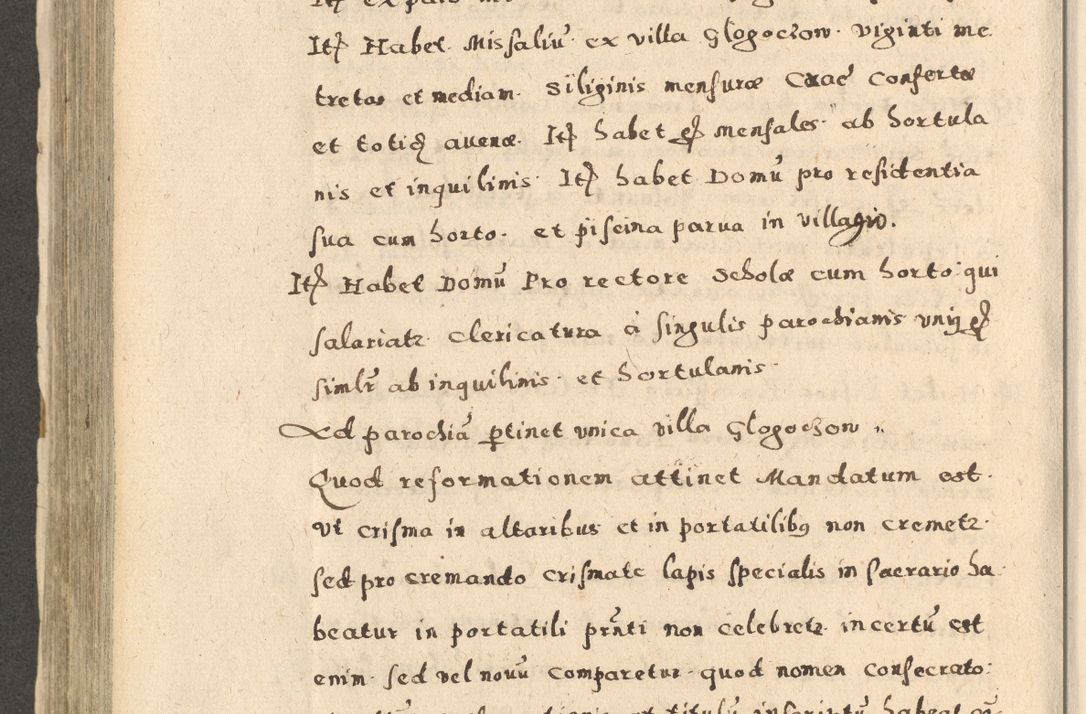 Itē Habet Missaliū ex villa Glogoczow viginti me
tretas et mediam siliginis mensuræ Crac confertæ
et totiđ avenæ. Itē habet mensales ab hortula
nis et inquilinis Itē habet Domū pro residentia
sua cum horto. et piscina parva in villagio.
Itē Habet Domū Pro rectore scholæ cum horto qui
salariatr clericatura à singulis parochianis
simlr ab inquilinis et hortulanis
Ad parochiā ptinet unica villa Glogoczow
Quod reformationem attinet Mandatum est.
Vt crisma in altaribus et in portatilibq non cremetr
sed pro cremando crismate lapis specialis in sacrario ha
beatur in portatili prnti non celebretr incertū est
enim sed vel novū comparetur quod nomen consecrato